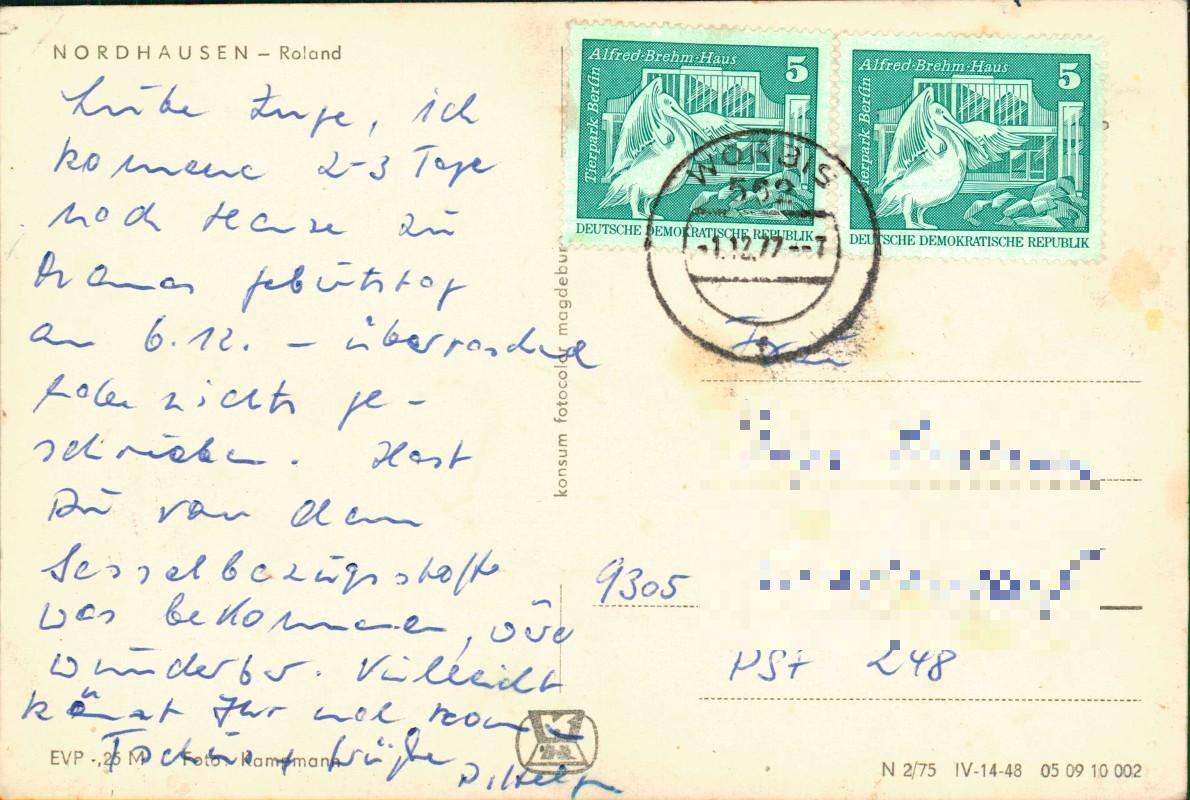 NORDHAUSEN – Roland
Liebe Inge, ich
komme 2-3 Tage
nach Hause zu
Mamas Gebürtstag
am 6.12. – überraschend
habe nichts ge-
schrieben. Hast
Dü von dem
Sesselbezügsstoffe
was bekommen, wäre
wünderbr. Vielleicht
könnt Ihr mal kom
Tschüß Grüße
konsum fotocolor magdeburg
EVP -,25 M Foto: Kampmann
Alfred-Brehm-Haus
5
Tierpark Berlin
DEUTSCHE DEMOKRATISCHE REPUBLIK
Alfred-Brehm-Haus
5
Tierpark Berlin
DEUTSCHE DEMOKRATISCHE REPUBLIK
WORBIS
562
-1.12.77--7
Frau
9305
PSF 248
N 2/75 IV-14-48 05 09 10 002